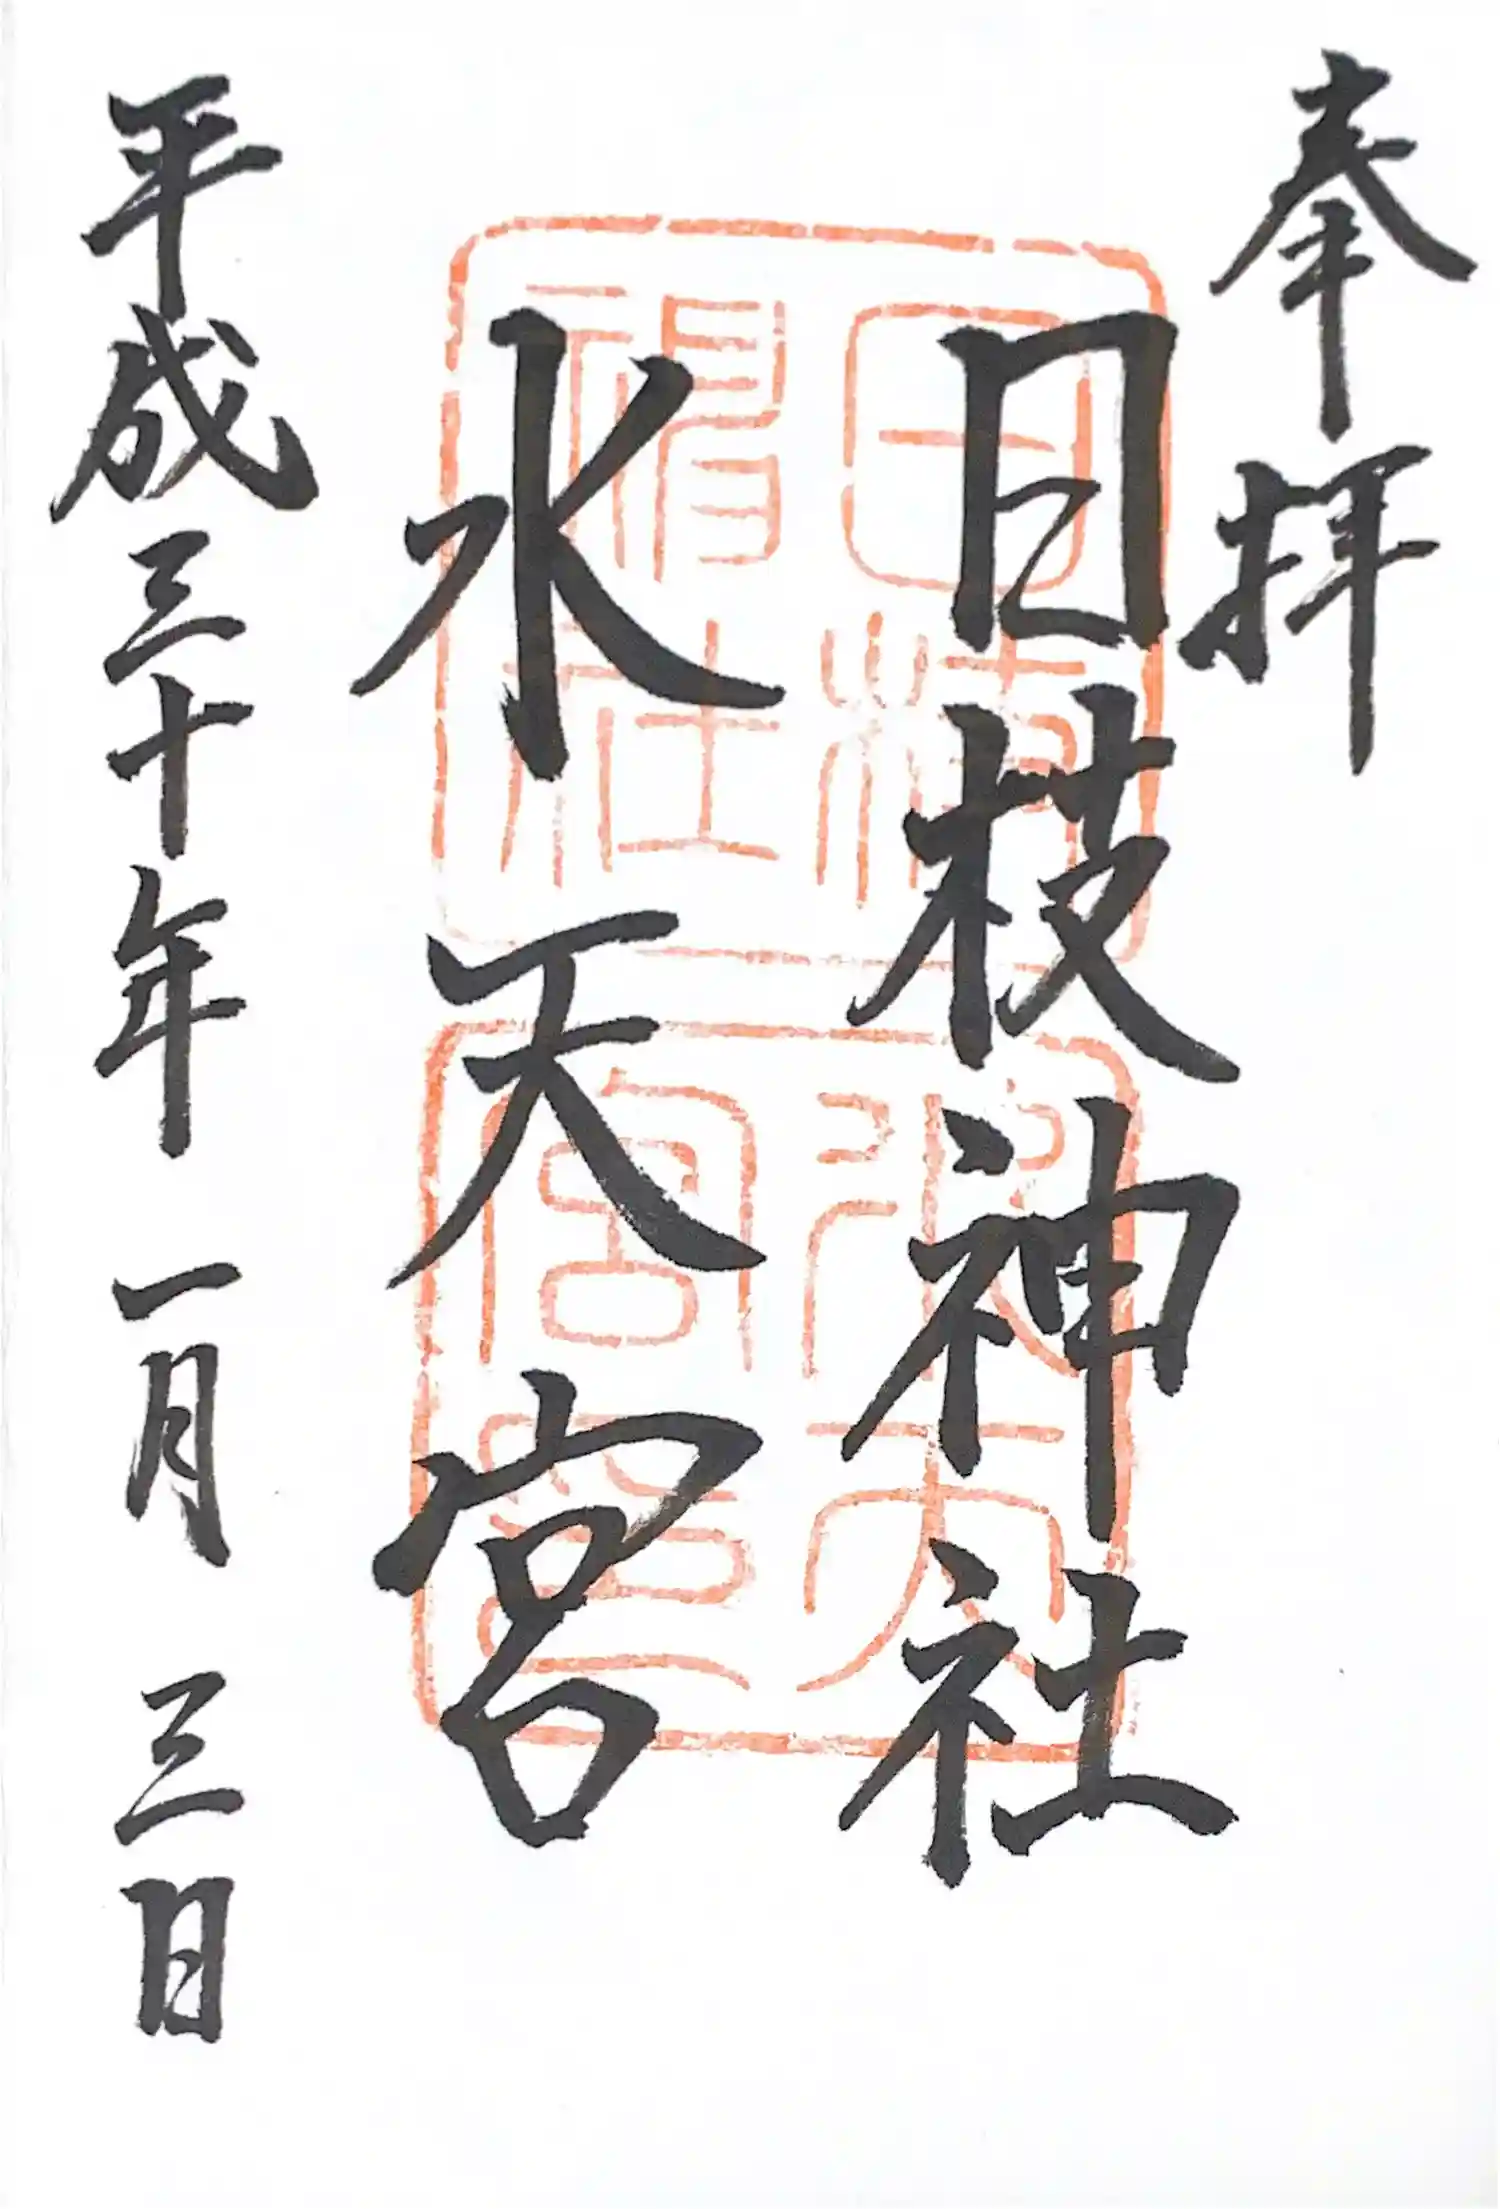 奉拝
日枝神社
水天宮
平成三十年 一月 三日
日枝神社
水天宮